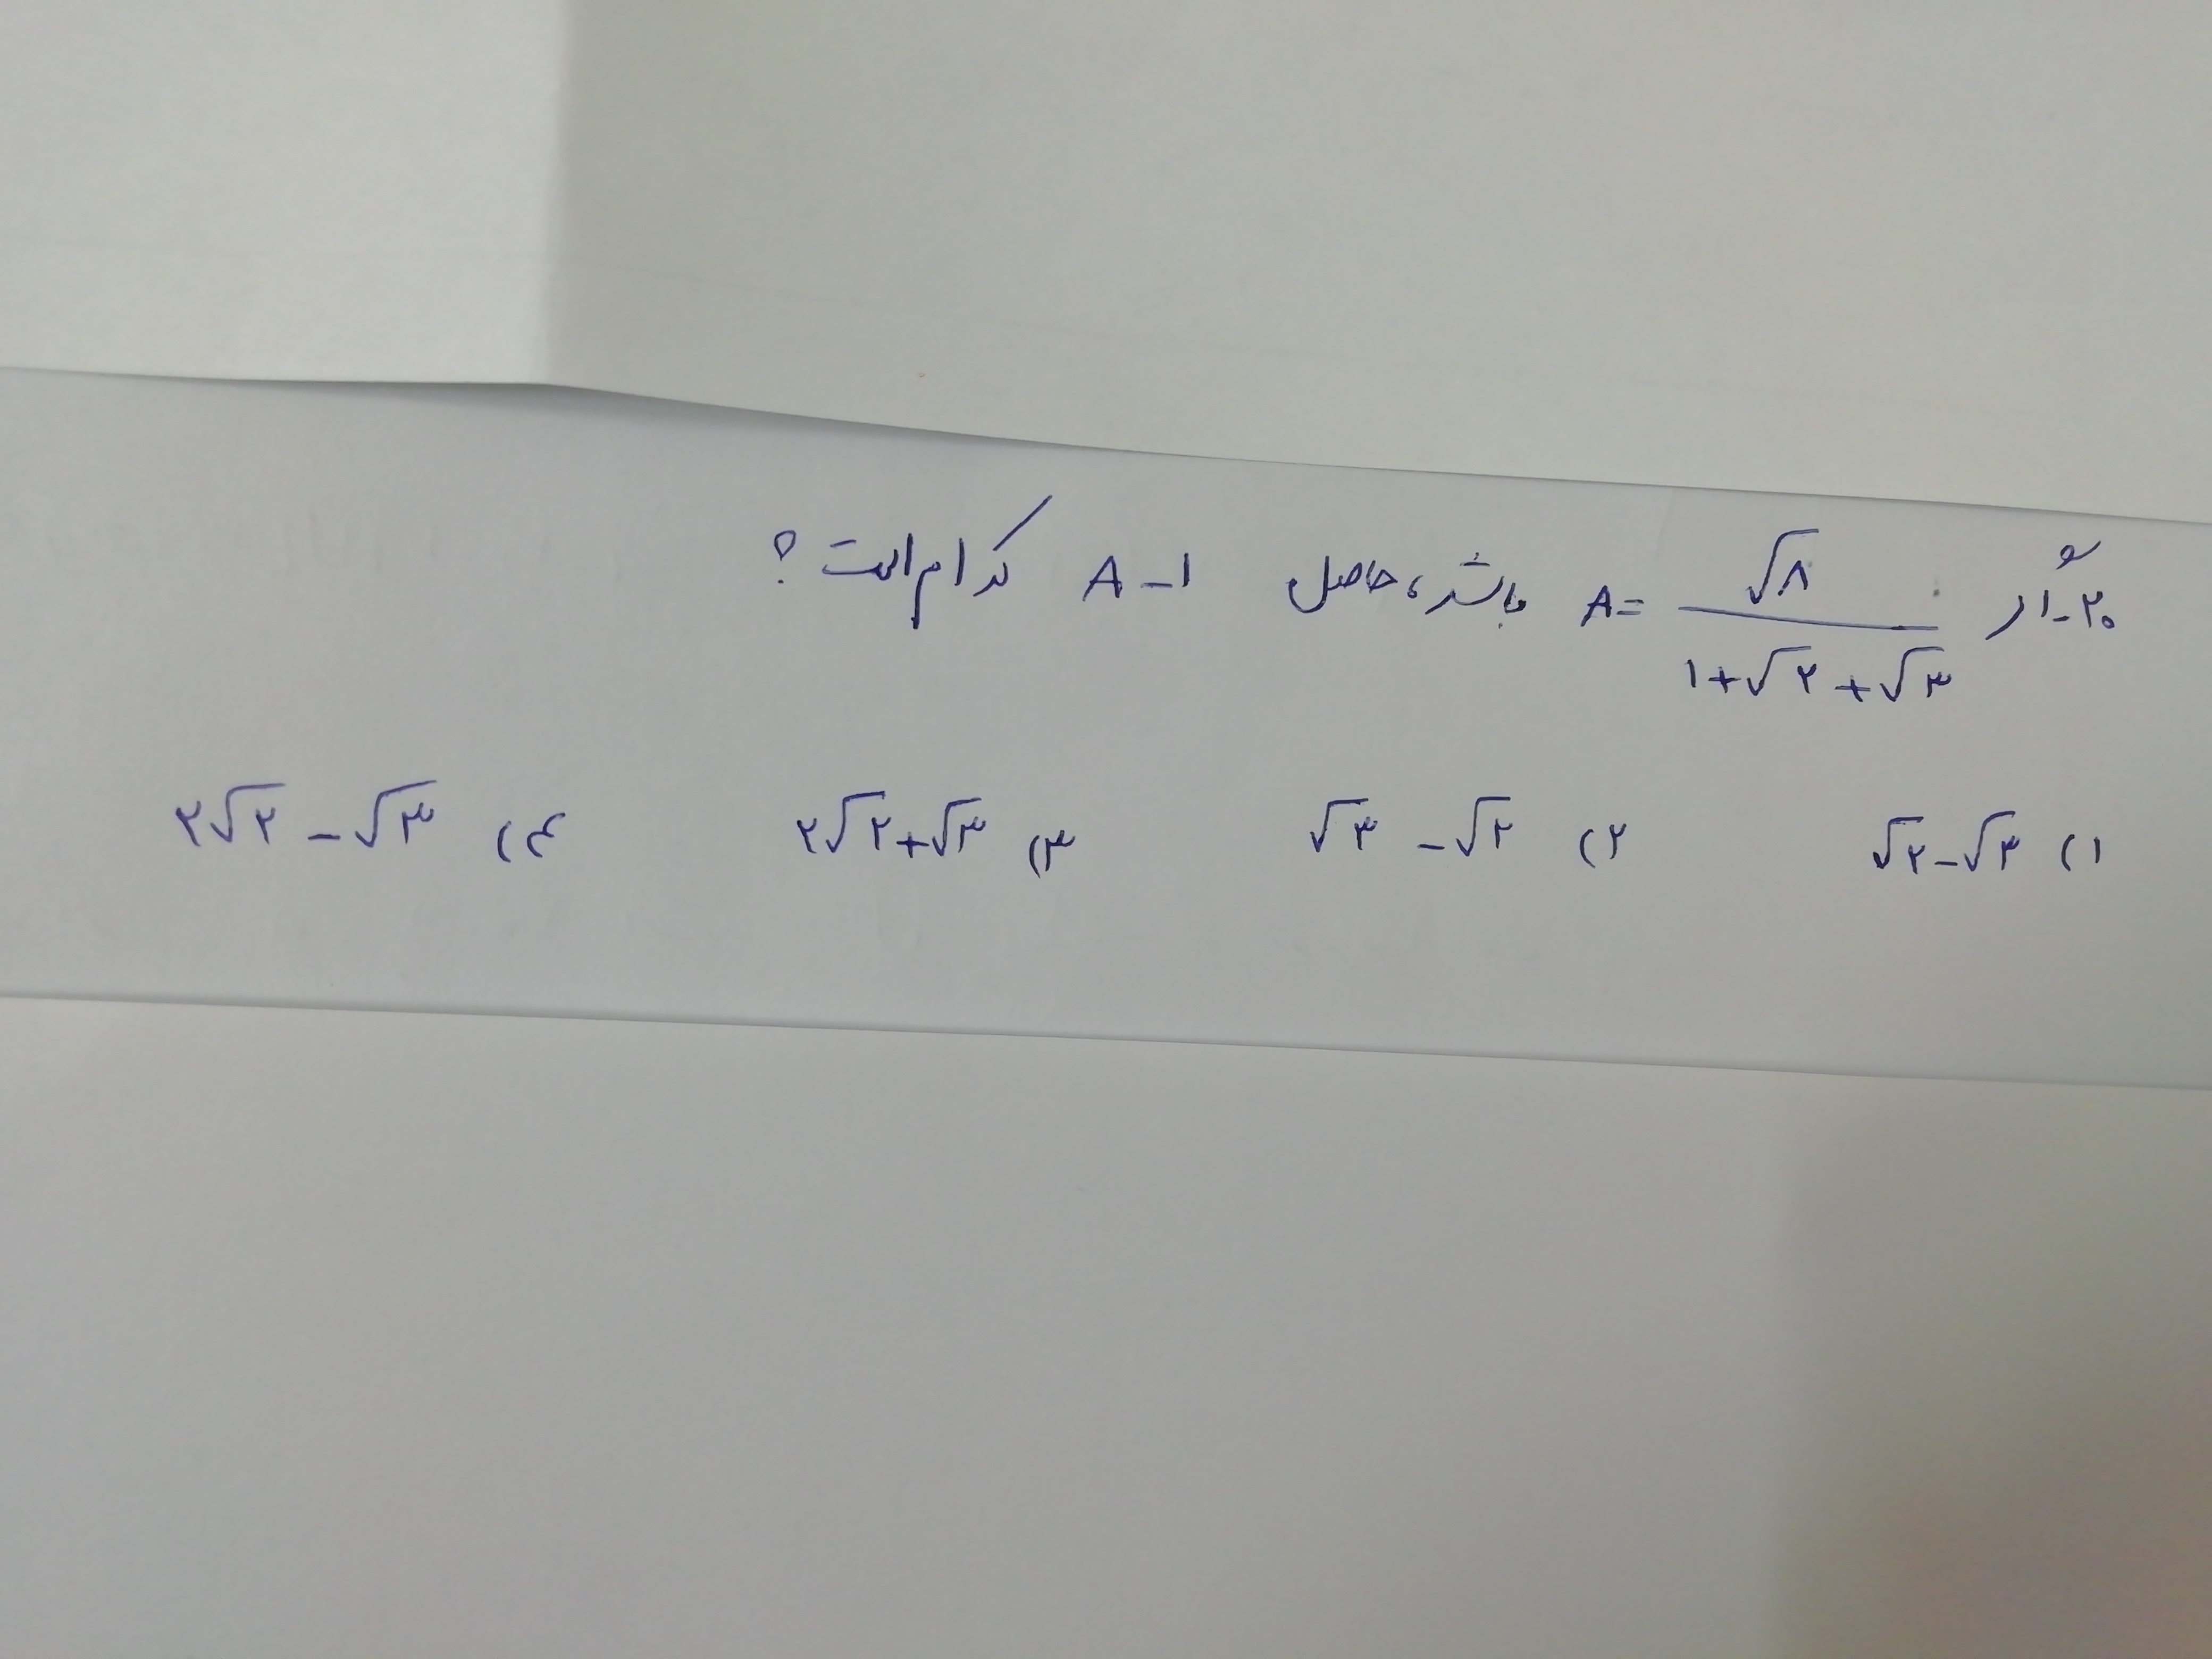 ۲۰- اگر A = √۸ / (۱+√۲+√۳) باشد، حاصل A-۱ کدام است؟
۱) √۲-√۳ ۲) √۳-√۲ ۳) ۲√۲+√۳ ۴) ۲√۲-√۳